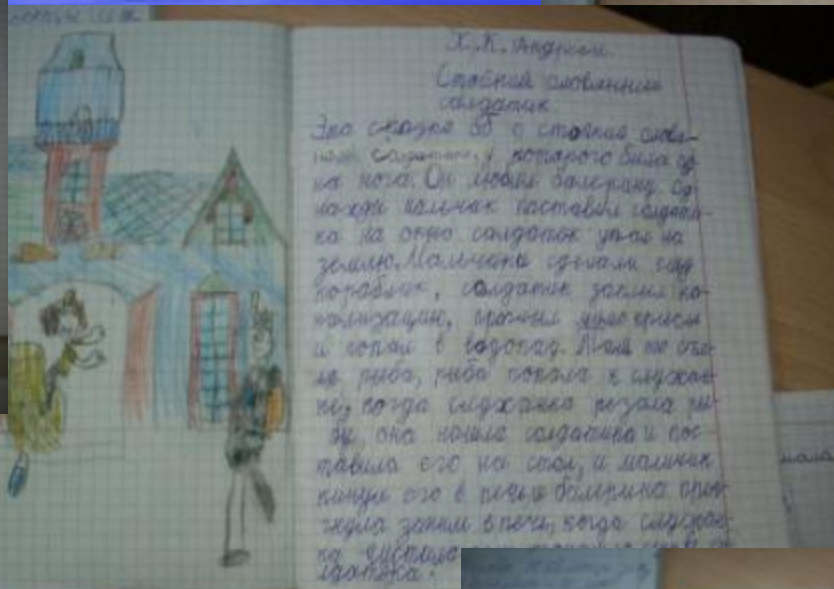 Х. К. Андрсен
Стойкий оловянный
солдатик
Эта сказка об о стойком оловя-
ном солдатике, у которого была од
на нога. Он любил балерину. Од-
нажды мальчик поставил солдати-
ка на окно солдатик упал на
землю. Мальчики сделали
кораблик, солдатик заплыл ка-
нализацию, проплыл мимо крысы
и попал в водопад. Там его съе-
ла рыба, рыба попала к служан-
ке, когда служанка резала ры-
бу, она нашла солдатика и пос-
тавила его на стол, и мальчик
кинул его в печь и балерина пры-
гнула заним в печь, когда служан-
ка